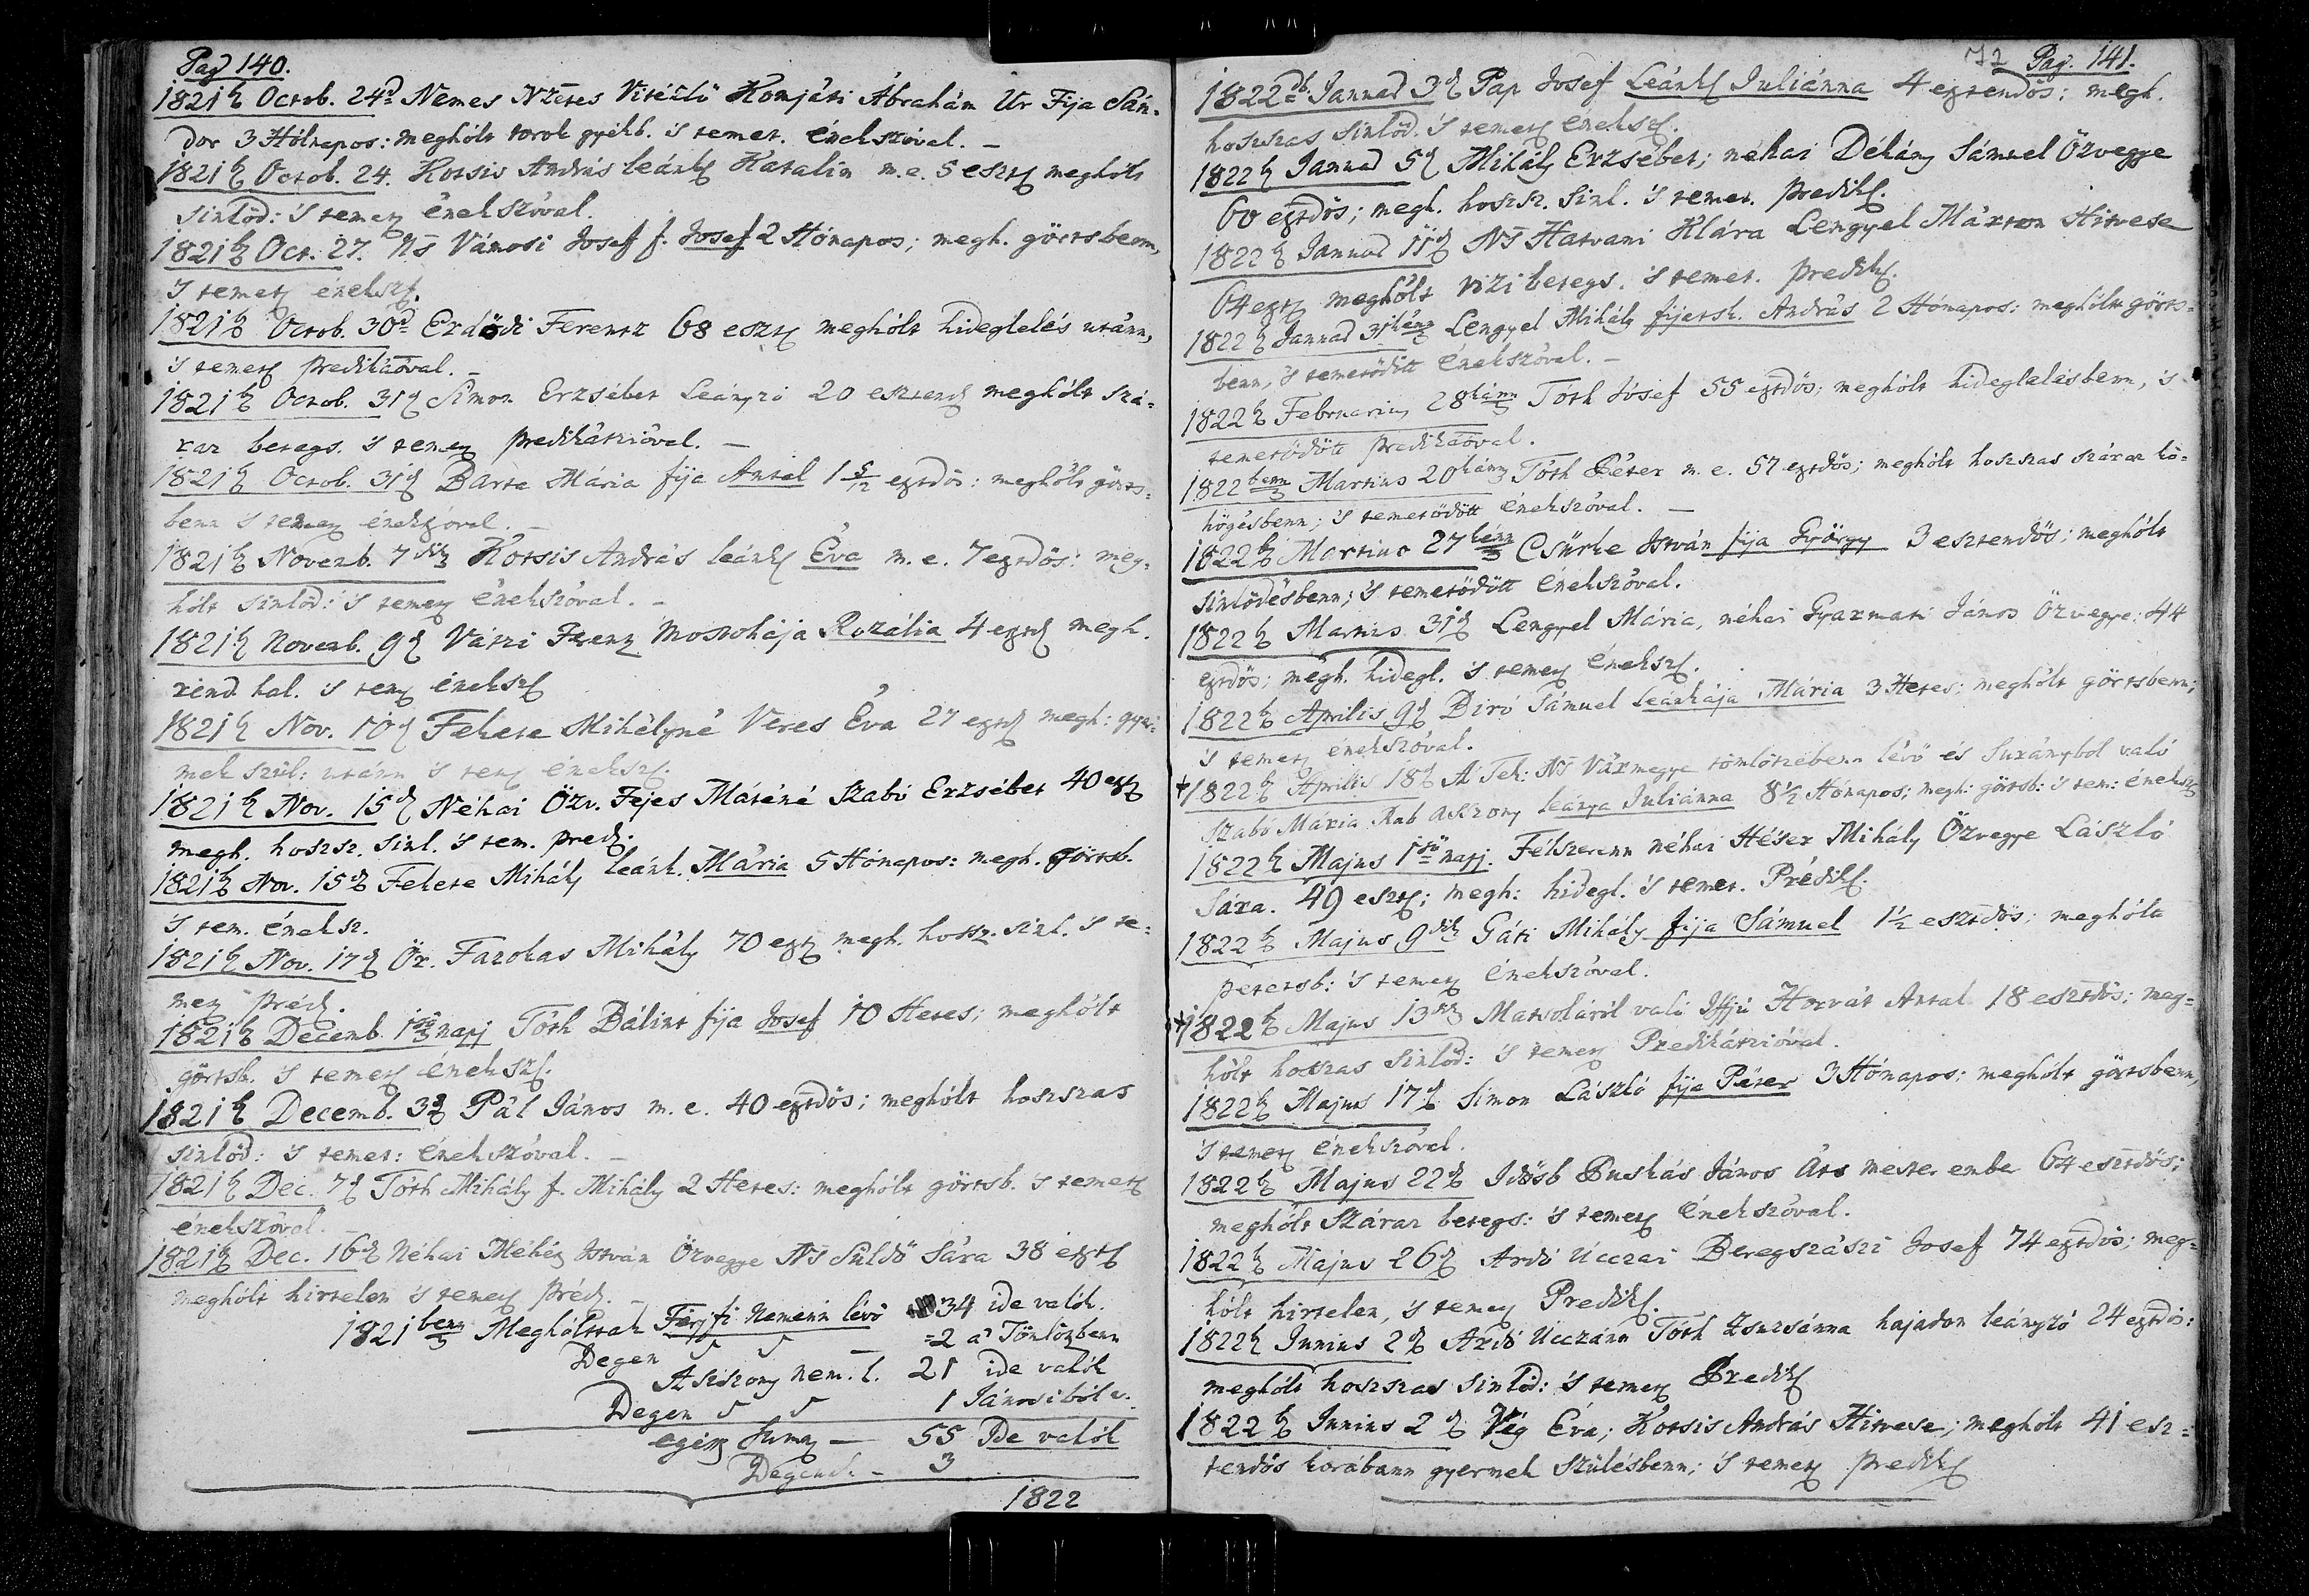 Pag 140.
1821b Octob. 24d Nemes Nzetes Vitézlő Komjáti Ábrahám Ur Fija Sán-
dor 3 Hólnapos: meghólt torok gyékb. 's temet. Énekszóval. —
1821b Octob. 24. Kotsis András leánk Katalin m. e. 5 eszt meghólt
sinlőd: 's temet énekszóval.
1821b Oct. 27. Ns Vámosi Josef f. Josef 2 Hónapos; megh. görtsbenn,
's temet éneksz.
1821b Octob. 30d Erdődi Ferentz 68 eszt meghólt hideglelés utánn,
's temet predikáóval. —
1821b Octob. 31d Simon Erzsébet Leányzó 20 esztend meghólt szá-
raz betegs. 's temet predikátzióval. —
1821b Octob. 31d Barta Mária fija Antal 1 5/12 esztdős: meghólt görts-
benn 's temet énekszóval. —
1821b Novemb. 7dik Kotsis András leánk Éva m. e. 7 esztdős: meg-
hólt sinlőd: 's temet Énekszóval. —
1821b Novemb. 9d Vátzi Ferenz mostohája Rozália 4 esztd megh.
rend. hal. 's tem éneksz
1821b Nov. 10d Fekete Mihályné Veres Éva 27 esztd megh: gyer-
mek szül: utánn 's tem éneksz.
1821b Nov. 15d Néhai Özv. Fejes Máténé Szabó Erzsébet 40 eszt
megh. hoszsz. sinl. 's tem. pred.
1821b Nov. 15d Fekete Mihály leánk. Mária 5 Hónapos: megh. Görtsb.
's tem. Éneksz.
1821b Nov. 17d Ör. Farkas Mihály 70 eszt megh. hossz. sinl. 's te-
met préd.
1821b Decemb. 1ső napj Tóth Bálint fija Josef 10 Hetes; meghólt
görtsb. 's temet éneksz.
1821b Decemb. 3d Pál János m. e. 40 esztdős; meghólt hoszszas
sinlőd: 's temet: Énekszóval. —
1821b Dec. 7d Tóth Mihály f. Mihály 2 Hetes: meghólt görtsb. 's temet
énekszóval. —
1821b Dec. 16d Néhai Méhész István Özvegye Ns Süldő Sára 38 eszt
meghólt hirtelen 's temet préd. —
1821benn Meghóltak Férjfi Nemenn lévő 34 ide valók.
Degen — =2 a' Tömlötzbenn
Aszszony nem. l. 21 ide valók
Degen 1 Jánosiból v.
egész Suma — 55 Ide valók
Degenek. - 3
1822
72 Pag. 141.
1822db Januar 3d Pap Josef Leánk Juliánna 4 esztendős: megh.
hoszszas sinlőd. 's temet éneksz.
1822b Januar 5d Mihály Erzsébet; néhai Dékány Sámuel Özvegye
60 esztdős; megh. hoszsz. sinl. 's temet. predik.
1822b Januar 11d Ns Hatvani Klára Lengyel Márton Hitvese
64 eszt meghólt vizi betegs. 's temet. predik.
1822b Januar 31kénn Lengyel Mihály fijatsk. András 2 Hónapos: meghólt görts-
benn, 's temetődött Énekszóval. —
1822b Februarius 28kánn Tóth Jósef 55 esztdős; meghólt hideglelésbenn, 's
temetődött predikáóval.
1822benn Martius 20kánn Tóth Péter m. e. 57 esztdős; meghólt hoszszas száraz kö-
högésbenn; 's temetődött Énekszóval. —
1822b Martius 27kénn Csürke István fija György 3 esztendős; meghólt
sinlődésbenn; 's temetődött Énekszóval.
1822b Martius 31d Lengyel Mária, néhai Gyarmati János Özvegye: 44
esztdős; megh. hidegl. 's temet Éneksz.
1822b Aprilis 9d Biró Sámuel leánkája Mária 3 Hetes; meghólt görtsbenn;
's temet énekszóval.
+1822b Aprilis 18d A Tek: Ns Vármegye tömlötzébenn lévő és Surányból való
Szabó Mária Rab aszszony leánya Juliánna 8 1/2 Hónapos; megh: görtsb: 's tem: éneksz
1822b Majus 1ső napj. Félszerenn néhai Héser Mihály Özvegye László
Sára. 49 eszt; megh: hidegl. 's temet. Prédik.
1822b Majus 9dik Gáti Mihály fija Sámuel 1 1/2 esztdős; meghólt
petetsb: 's temet Énekszóval.
+1822b Majus 13dik Matsoláról való Iffjú Horvát Antal 18 esztdős; meg-
hólt hoszas sinlőd: 's temet Predikátzióval.
1822b Majus 17d Simon László fija Péter 3 Hónapos; meghólt görtsbenn,
's temet énekszóval.
1822b Majus 22d Idősb Puskás János Áts mester ember 64 esztdős;
meghólt Száraz betegs: 's temet Énekszóval.
1822b Majus 26d Ardó Ucczai Beregszászi Josef 74 esztdős; meg-
hólt hirtelen, 's temet Predik.
1822b Junius 2d Ardó Ucczánn Tóth Zsuzsánna hajadon leányzó 24 esztdős:
meghólt hoszszas sinlőd: 's temet Predik
1822b Junius 2d Vég Éva; Kotsis András Hitvese; meghólt 41 esz-
tendős korábann gyermek szülésbenn; 's temet predik